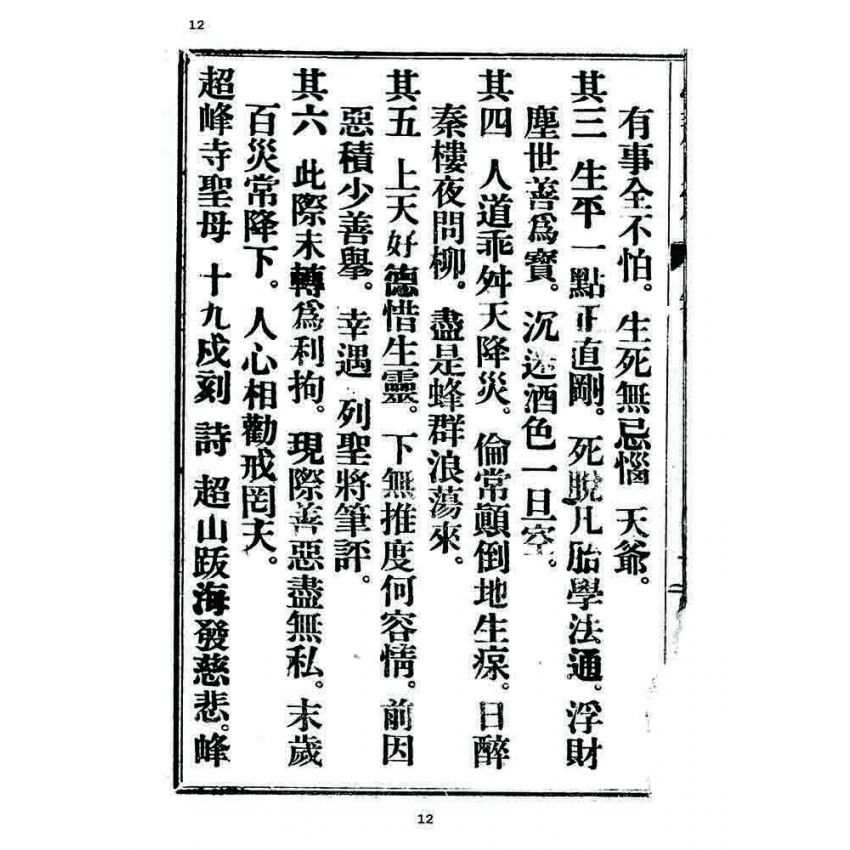 12
有事全不怕。生死無忌惱 天爺。
其三 生平一點正直剛。死脫凡胎學法通。浮財
塵世善爲寶。沉迷酒色一旦空。
其四 人道乖舛天降災。倫常顛倒地生瘝。日醉
秦樓夜問柳。盡是蜂群浪蕩來。
其五 上天好德惜生靈。下無推度何容情。前因
惡積少善舉。幸遇 列聖將筆評。
其六 此際未轉爲利拘。現際善惡盡無私。末歲
百災常降下。人心相勸戒罔夫。
超峰寺聖母 十九戌刻 詩 超山跋海發慈悲。峰
12